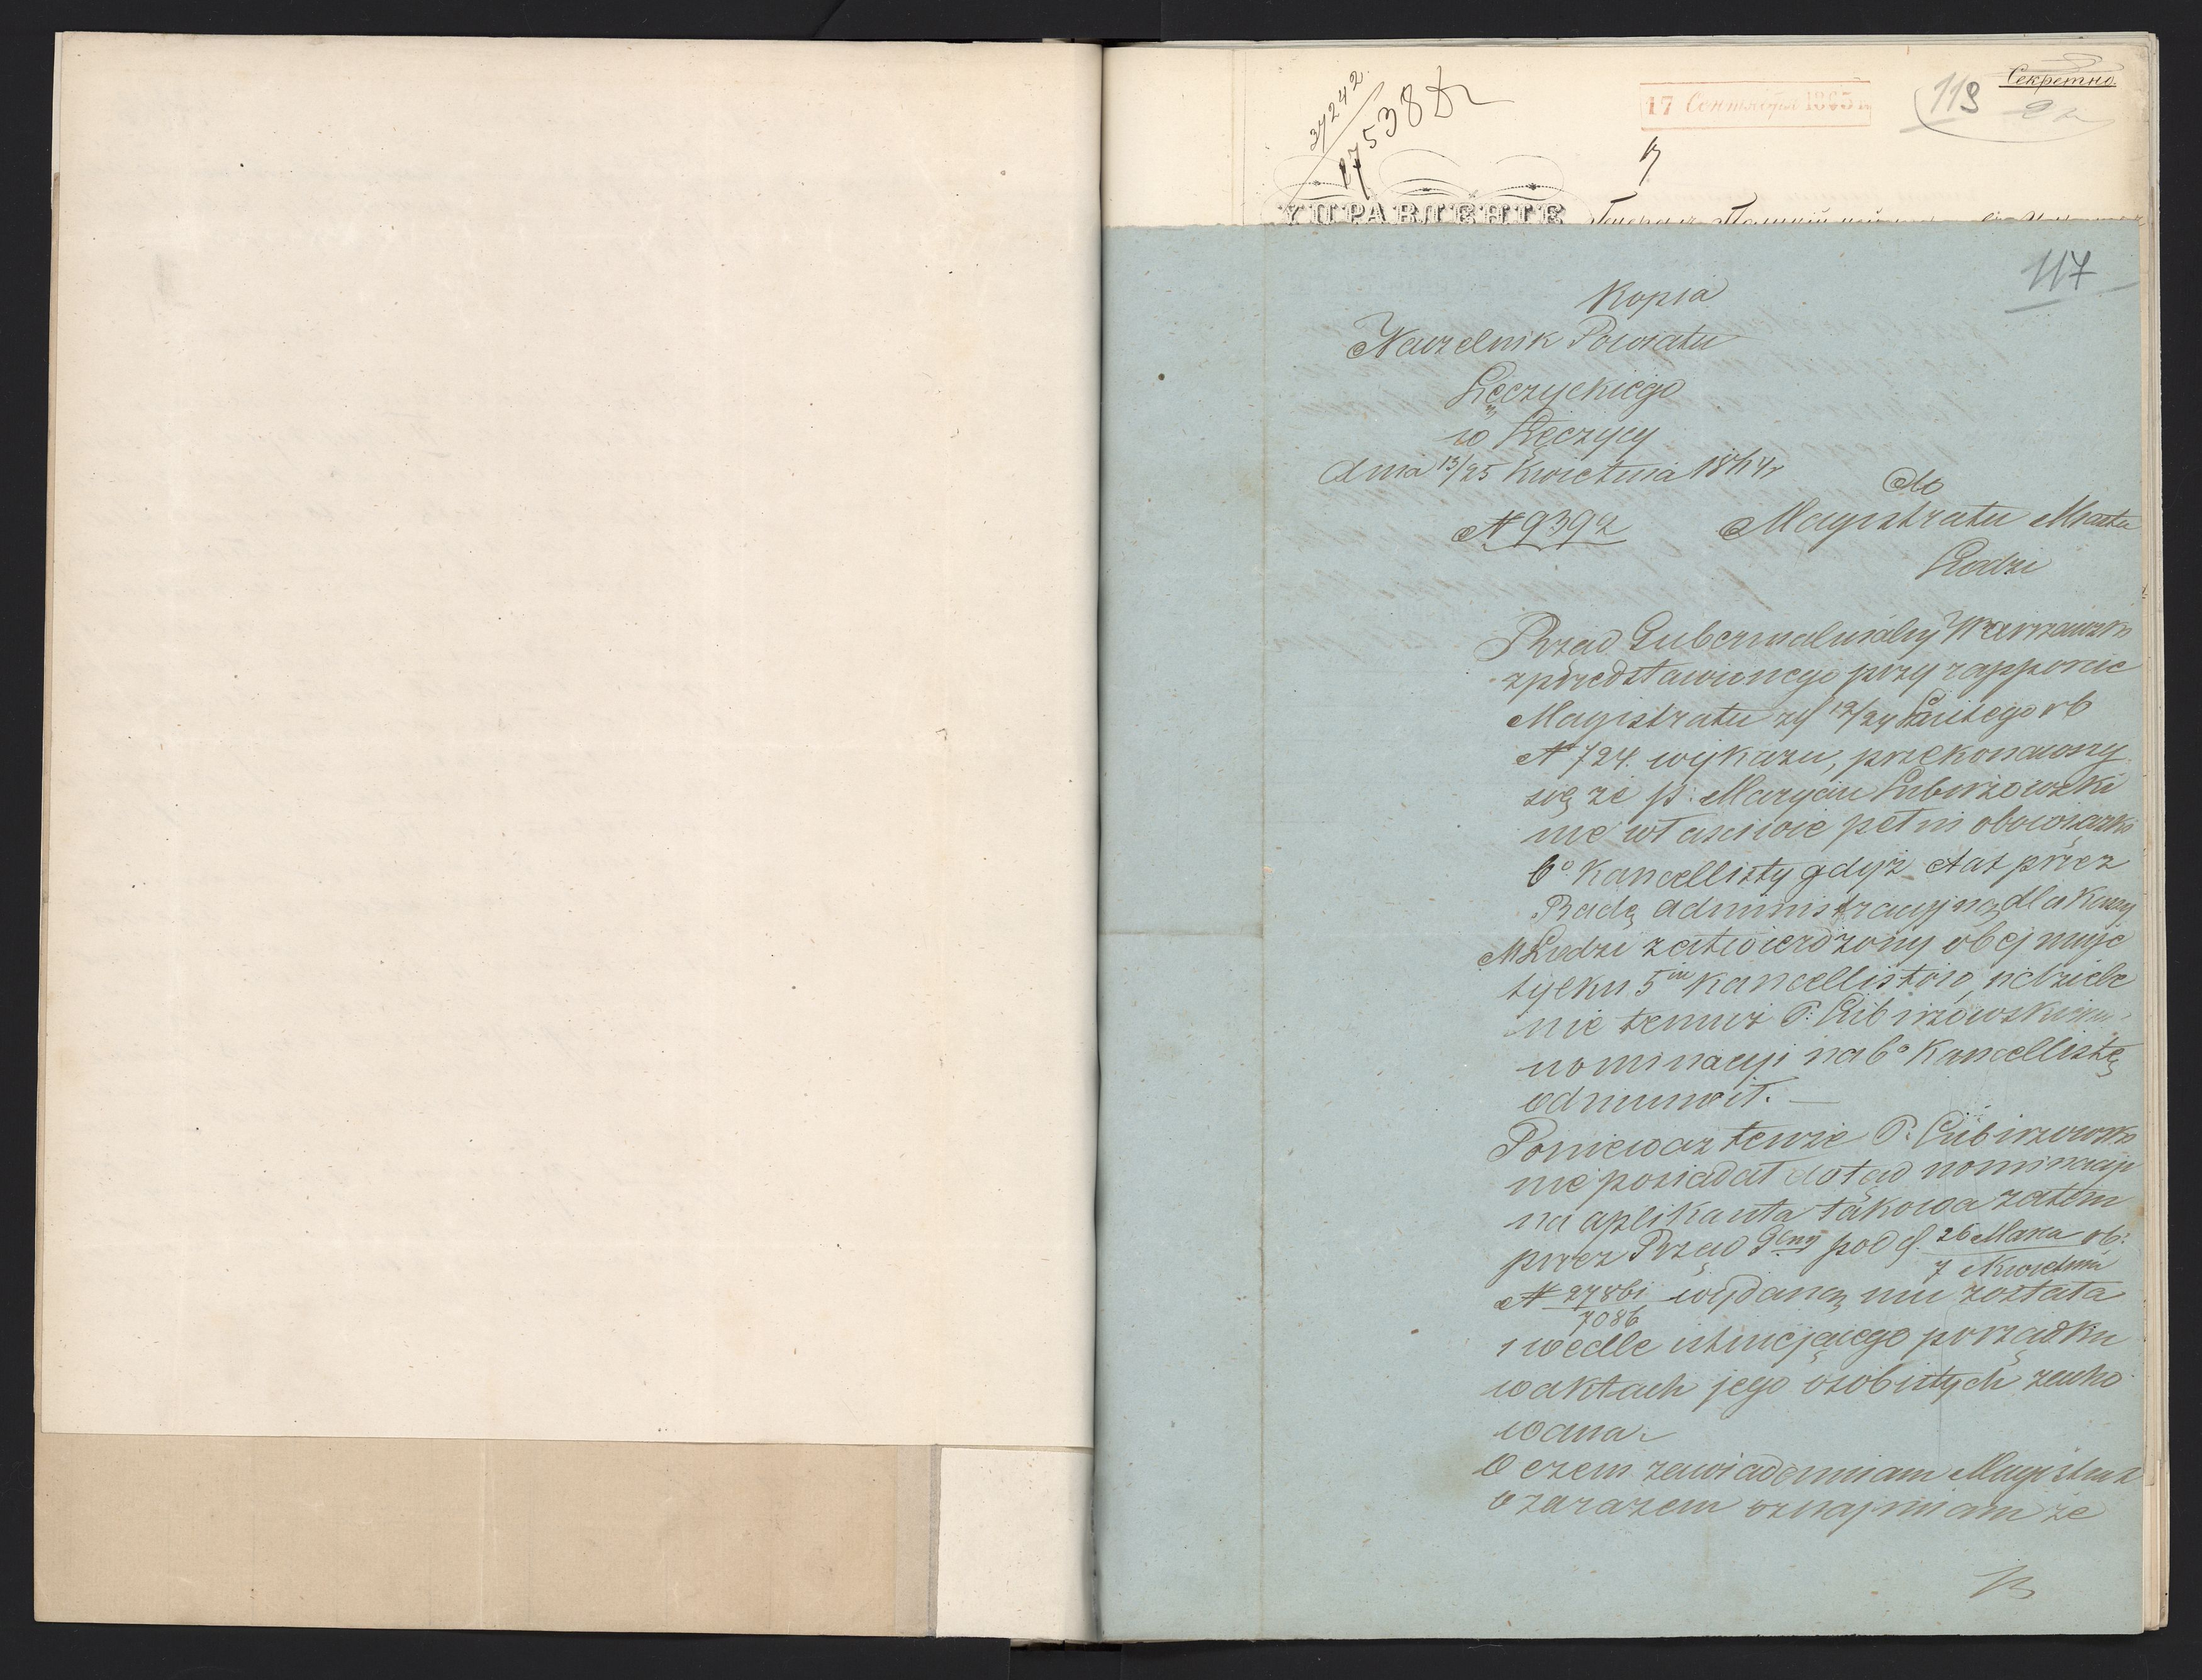 Секретно.
37242
27538
17 Сентября 1865 г.
119
УПРАВЛЕНІЕ
117
Kopia
Naczelnik Powiatu
Łęczyckiego
w Łęczycy
dnia 13/25 Kwietnia 1864 r
Do
N 9392 Magistratu Miasta
Łodzi
Rząd Gubernialny Warszawski
z przedstawionego przy rapporcie
Magistratu z d 12/24 Lutego rb
N 724. wykazu, przekonawszy
się że p: Maryan Lubirzowski
nie właściwie pełni obowiązki
6º Kancellisty gdyż etat przez
Radę Administracyjną dla Kassy
M Łodzi zatwierdzony obejmuje
tylko 5iu kancellistów, udziele
nie temuż P: Lubirzowskiemu
nominacyi na 6º Kancellistę
odmówił. —
Ponieważ tenże P: Lubirzowski
nie posiadał dotąd nominacyi
na aplikanta takowa zatem
przez Rząd Gny pod d. 26 Marca rb:
7 Kwietnia
N 27861 wydaną mu została
7086
i wedle istniejącego porządku
w aktach jego osobistych zacho
wana.
O czem zawiadamiam Magistrat
zarazem oznajmiam że